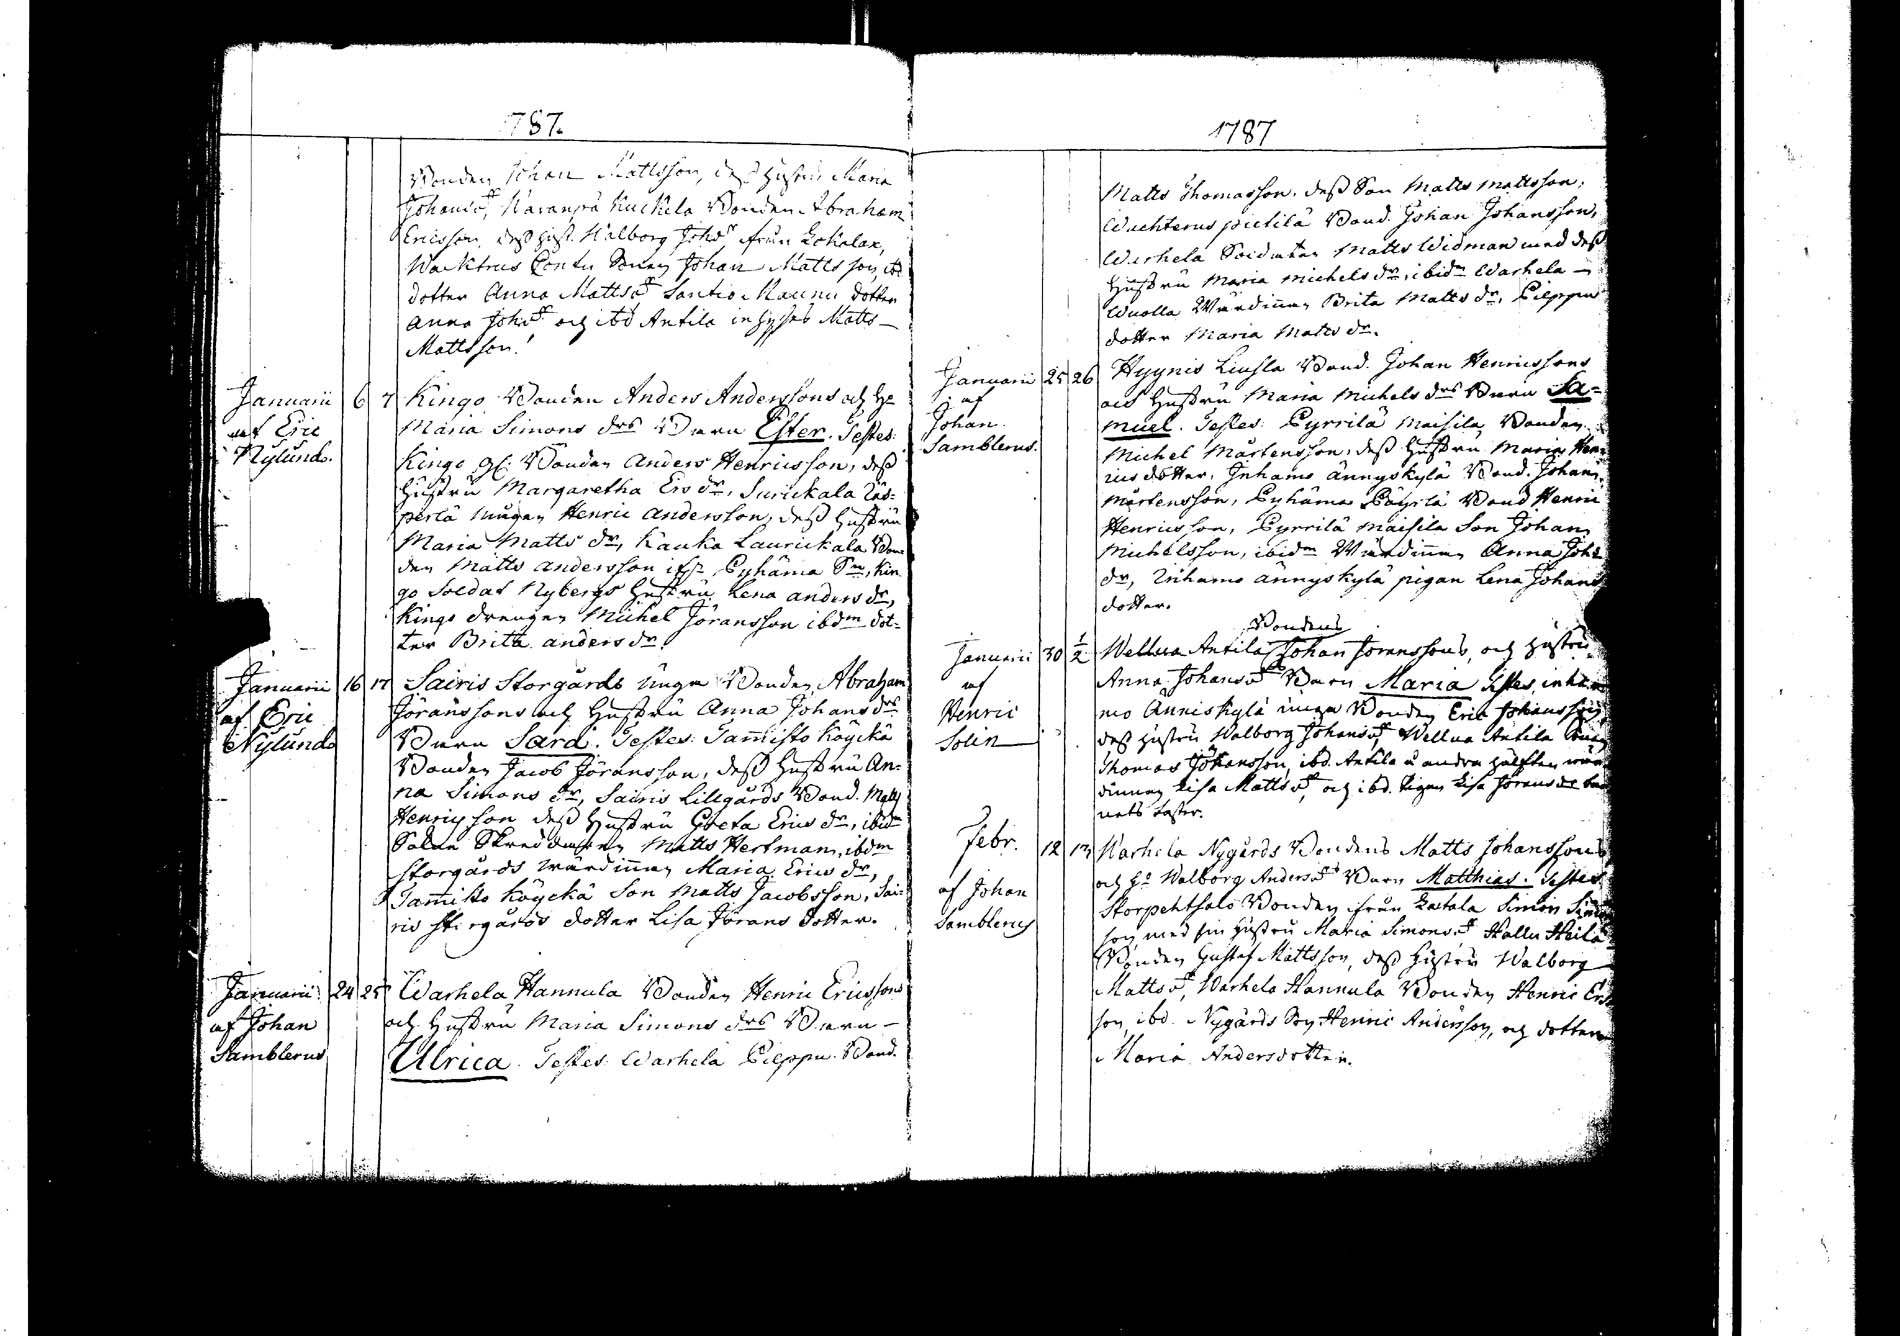 1787.
Bonden Johan Mattsson, dess hustru Maria
Johansdr, Kuckila Bonden Abraham
Ericsson, dess hust. Walborg Johdr från Lokalax,
Johan Mattsson, ibd
dotter Anna Mattsdr Santio Maunu dotter
Anna Johdr och ibd Antila inhyses Matts
Mattsson.
Januarii 6 7 Kingo Bonden Anders Anderssons och H:
af Eric Maria Simons drs Barn Ester. Testes:
Nylund. Kingo gl: Bonden Anders Henricsson, dess
hustru Margaretha Ers dr, Surickala Räs-
perlä ungen Henric Andersson, dess hustru
Maria Matts dr, Kauko Laurickala Bon-
den Matts Andersson Pyhäma Sn, Kin
go Soldat Nybergs hustru Lena Anders dr,
Kingo drengen Michel Jöransson ibdm dot-
ter Britta Anders dr.
Januarii 16 17 Sairis Storgårds unga Bonden Abraham
af Eric Jöranssons och hustru Anna Johans drs
Nylund Barn Sara. Testes: Tamisto Köyckä
Bonden Jacob Jöransson, dess hustru An-
na Simons dr, Sairis Lillgårds Bond. Matts
Henricsson dess hustru Greta Erics dr, ibidm
Matts Hertman, ibdm
Storgårds wärdinnan Maria Erics dr,
Tamisto Köyckä Son Matts Jacobsson, Sai-
ris Storgårds dotter Lisa Jörans dotter.
Januarii 24 25 Warhela Hannula Bonden Henric Ericssons
af Johan och hustru Maria Simons drs Barn
Samblerus Ulrica. Testes: Warhela Pilppu Bond.
1787
Matts Thomasson, dess Son Matts Mattsson,
Wachterus pietilä Bond. Johan Johansson,
Warhela Soldaten Matts Widman med dess
hustru Maria Michels dr, ibidm Warhela
Wuolla Wärdinnan Brita Matts dr, Pilppu
dotter Maria Matts dr.
Januarii 25 26 Hyynis Liusla Bond. Johan Henricssons
af och hustru Maria Michels drs Barn Sa-
Johan muel. Testes: Pyrrilä Maisila Bonden
Samblerus. Michel Mårtensson, dess hustru Maria Hen-
rics dotter, Inhamo Ännyskylä Bond. Johan
Mårtensson, Pyhäma Bond Henric
Henricsson, Pyrrilä Maisila Son Johan
Michelsson, ibidm Wärdinnan Anna Joh:
dr, Inhamo Ännyskylä pigan Lena Johans
dotter.
Bondens
Januarii 30 1/2 Wellua Antila Johan Joranssons, och hustru
af Anna Johansdrs Barn Maria Testes, inha-
Henric mo Änniskylä unga Bonden Eric Johansson,
Solin dess hustru Walborg Johansdr, Wellua Antila
Thomas Johansson, ibd. Antila å andra hälften wär-
dinnan Lisa Mattsdr, och ibd. Pigan Lisa Jöransdr bar
nets faster.
Febr. 12 13 Warhela Nygårds Bondens Matts Johanssons
af Johan och H: Walborg Andersdrs Barn Matthias. Testes
Samblerus Storpehtsalo Bonden från Simon Simons
son med sin hustru Maria Simonsdr Hallu Heilä
Bonden Gustaf Mattsson, dess hustru Walborg
Mattsdr, Warhela Hannula Bonden Henric Ers
son, ibd. Nygårds Son Henric Andersson, och dotter
Maria Andersdotter.